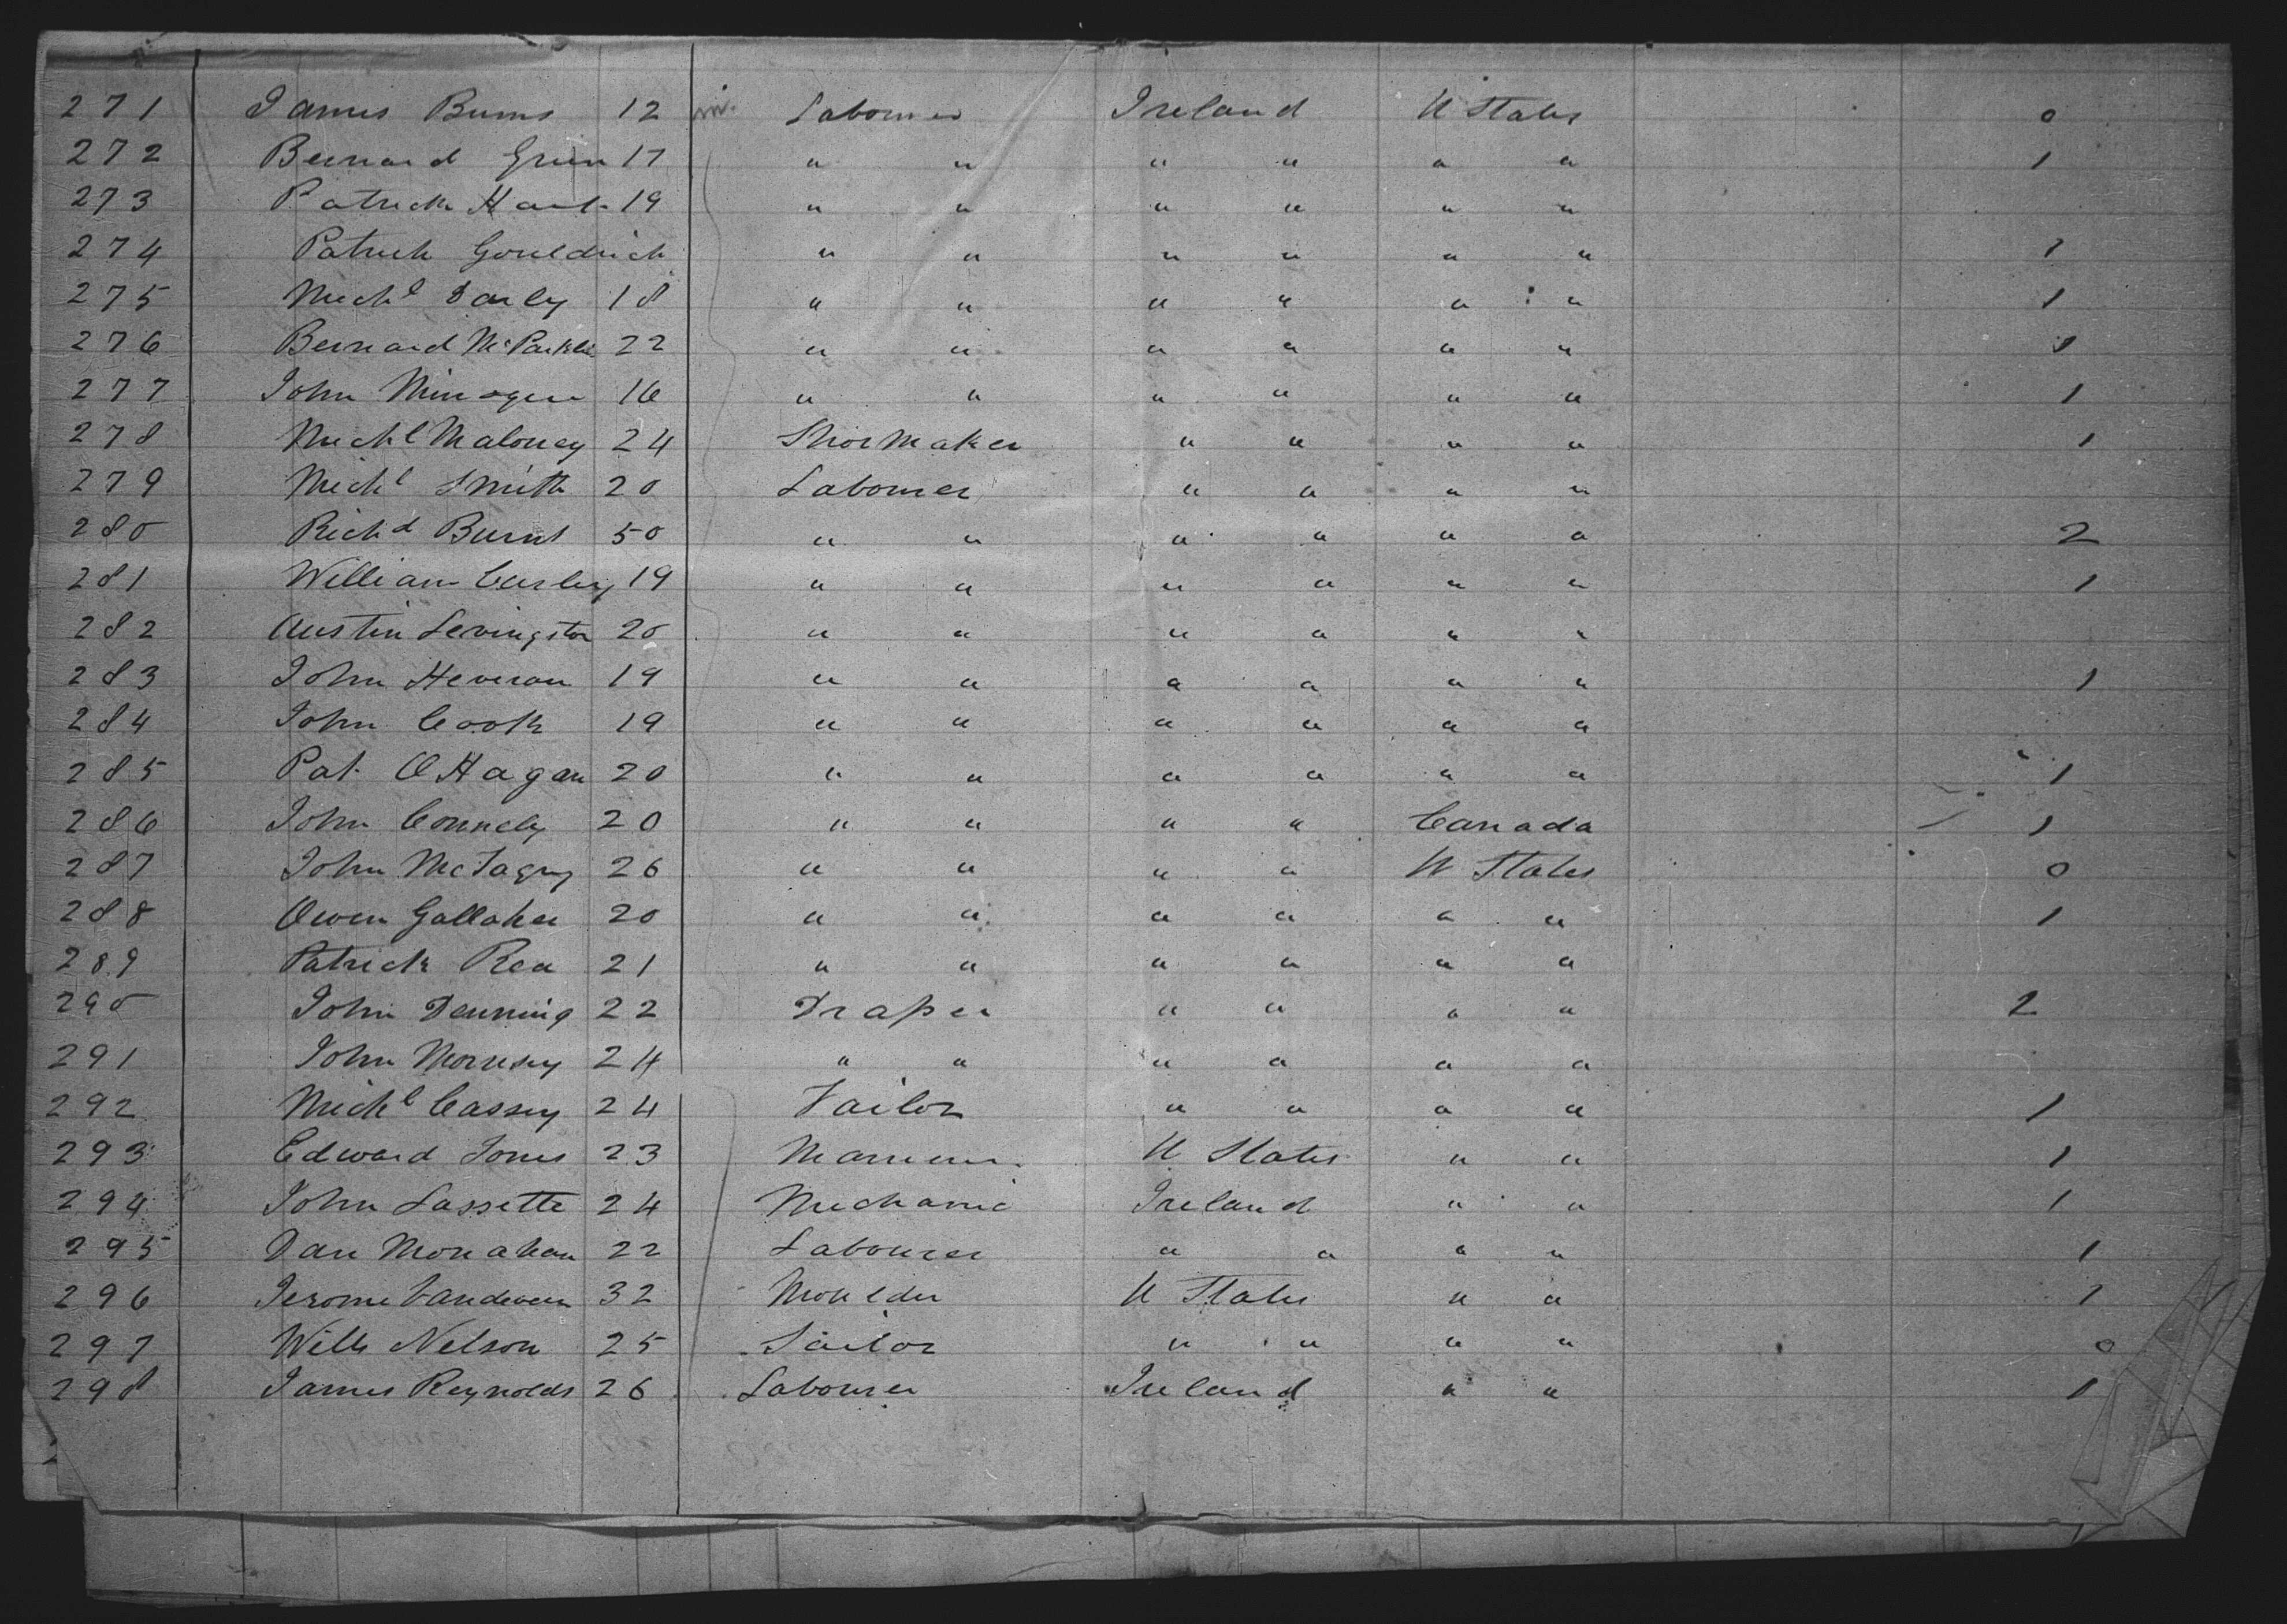 271 James Burns 12 m. Labourer Ireland U States 0
272 Bernard Green 17 " " " " " " 1
273 Patrick 19 " " " " " "
274 Patrick Gouldrick " " " " " " 1
275 Michl 18 " " " " " " 1
276 Bernard 22 " " " " " " 1
277 John Minogue 16 " " " " " " 1
278 Michl Maloney 24 Shoemaker " " " " 1
279 Michl Smith 20 Labourer " " " "
280 Richd Burns 50 " " " " " " 2
281 William 19 " " " " " " 1
282 Austin Levingston 20 " " " " " "
283 John Heveran 19 " " " " " " 1
284 John Cook 19 " " " " " "
285 Pat O Hagan 20 " " " " " " 1
286 John Connely 20 " " " " Canada 1
287 John 26 " " " " U States 0
288 Owen Gallaher 20 " " " " " " 1
289 Patrick Rea 21 " " " " " "
290 John Denning 22 Draper " " " " 2
291 John Morrisey 24 " " " " " "
292 Michl Cassey 24 Tailor " " " " 1
293 Edward Jones 23 U States " " 1
294 John Lassette 24 Mechanic Ireland " " 1
295 Dan Monahan 22 Labourer " " " " 1
296 Jerome Vandeveer 32 Moulder U States " " 1
297 Willm Nelson 25 Sailor " " " " 0
298 James Reynolds 26 Labourer Ireland " " 1